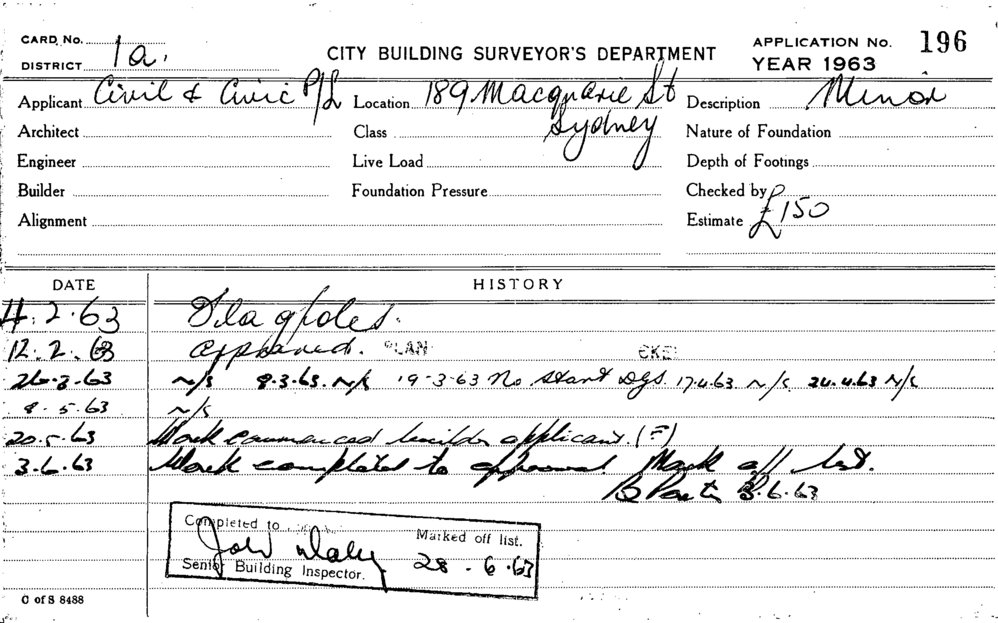 CARD. No.
DISTRICT 1a.
CITY BUILDING SURVEYOR'S DEPARTMENT
APPLICATION No. 196
YEAR 1963
Applicant Civil & Civic P/L Location 189 Macquarie St Description Minor
Sydney
Architect Class Nature of Foundation
Engineer Live Load Depth of Footings
Builder Foundation Pressure Checked by
Alignment Estimate £150
DATE HISTORY
4.2.63 Flagpoles.
12.2.63 Approved. PLAN
26-2-63 n/s 8-3-63. n/s 19-3-63 No start 17.4.63 n/s 24.4.63 n/s
8.5.63 n/s
20.5.63 Work commenced builder applicant.
3.6.63 Work completed to approval Mark off list.
3.6.63
Completed to Marked off list.
John Daley 28.6.63
Senior Building Inspector.
C of S 8488